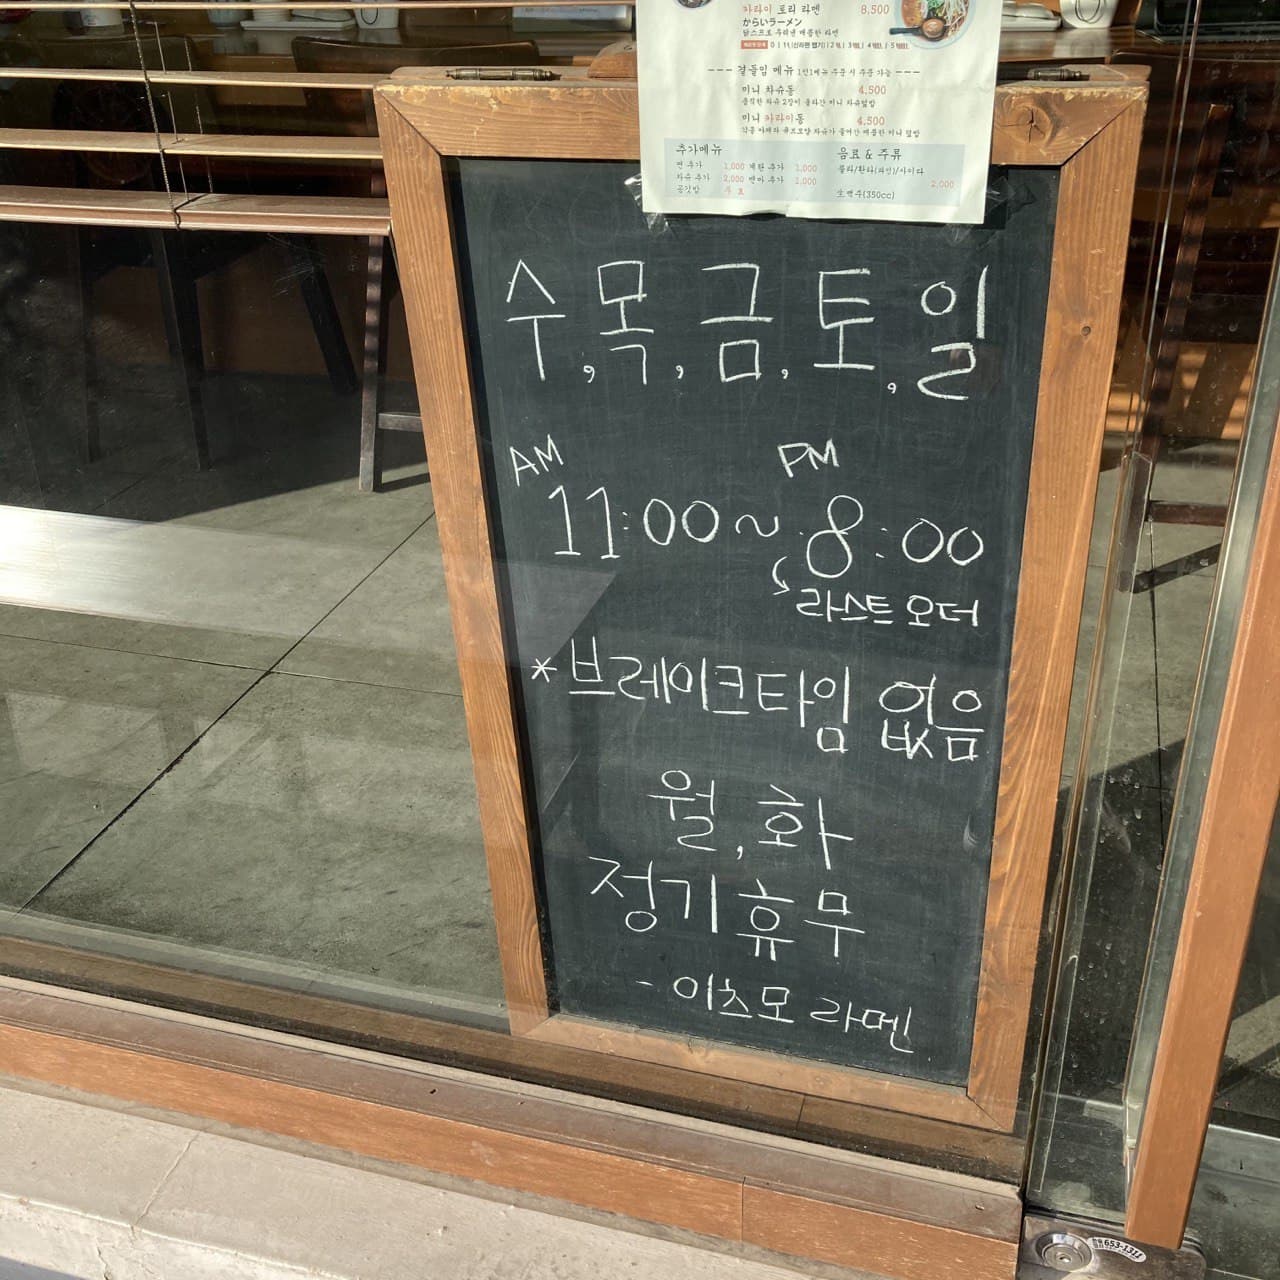 카라이 토리 라멘 8,500
からいラーメン
닭스프로 우려낸 매콤한 라멘
--- 곁들임 메뉴 1인1메뉴 주문 시 주문 가능 ---
미니 차슈동 4,500
미니 카라이동 4,500
추가메뉴
면 추가 1,000 계란 추가 1,000
차슈 추가 2,000 멘마 추가 1,000
공깃밥 무료
음료 & 주류
콜라/환타(파인)/사이다
2,000
生맥주(350cc)
수, 목, 금, 토, 일
AM PM
11:00 ~ 8:00
라스트 오더
*브레이크타임 없음
월, 화
정기휴무
- 이츠모 라멘
653-1311